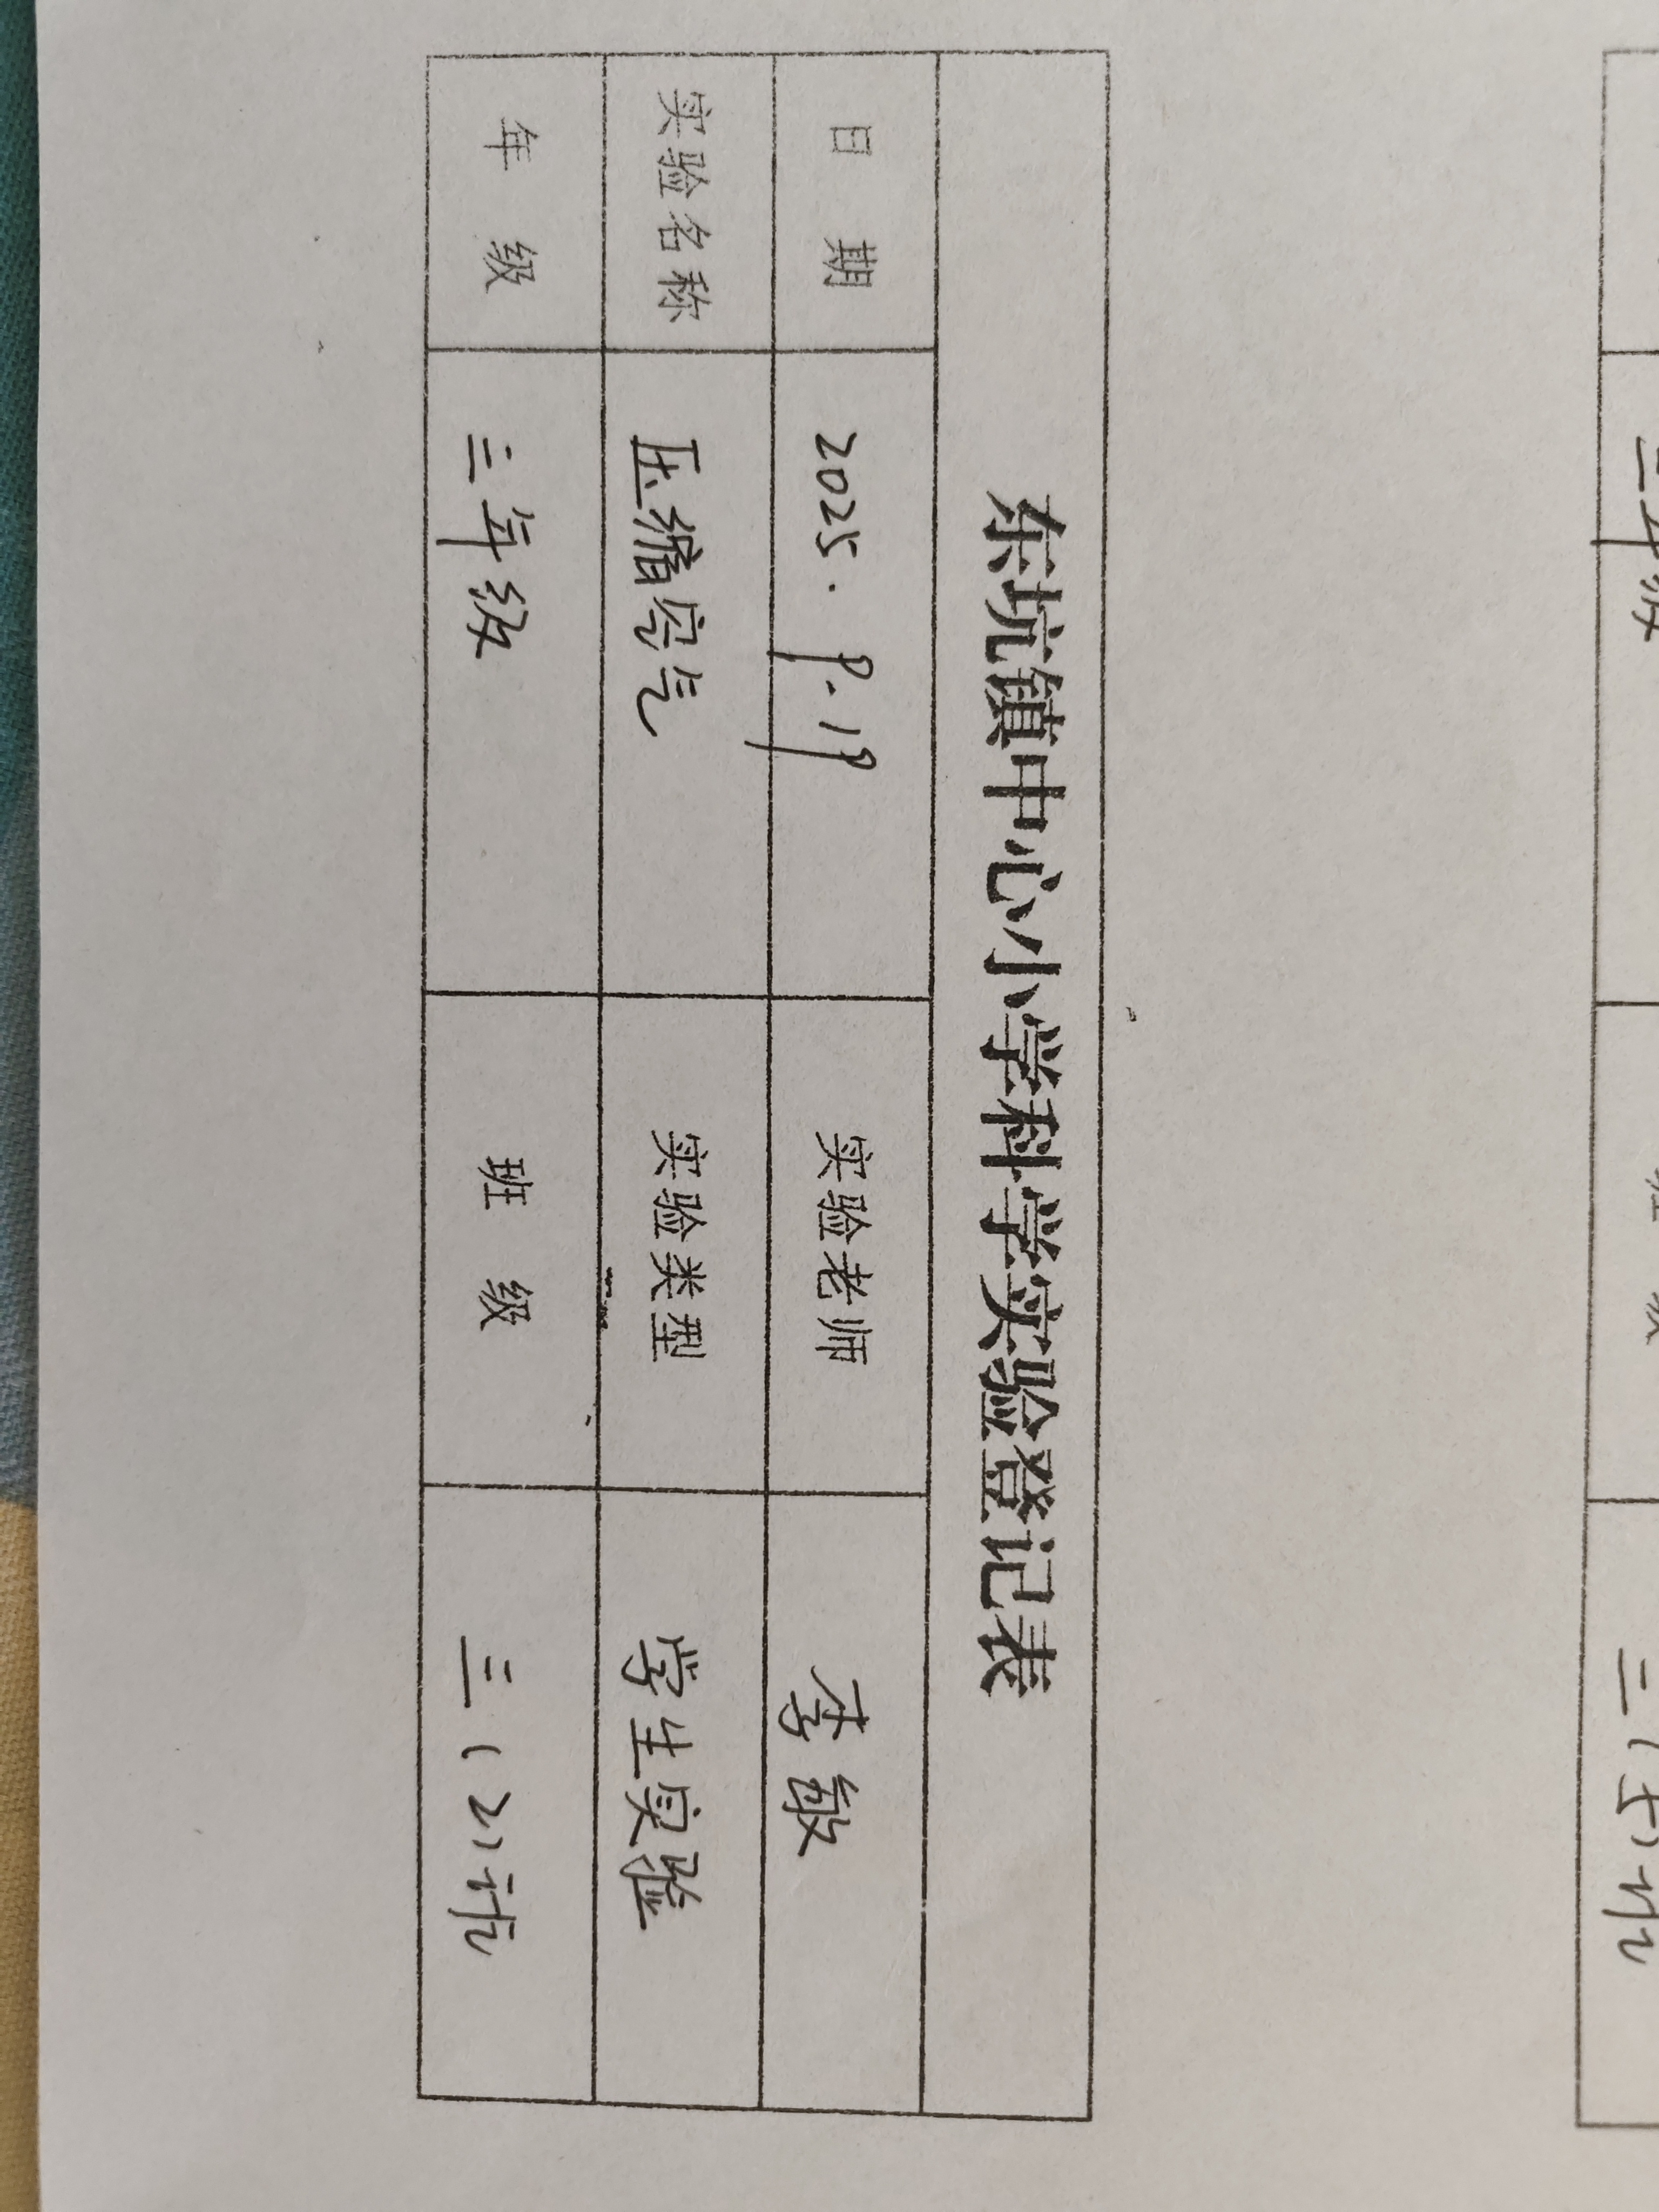 东坑镇中心小学科学实验登记表
日 期 2025.9.19 实验老师 李敏
实验名称 压缩空气 实验类型 学生实验
年 级 三年级 班 级 三(2)班
三年级 班 级 三(5)班